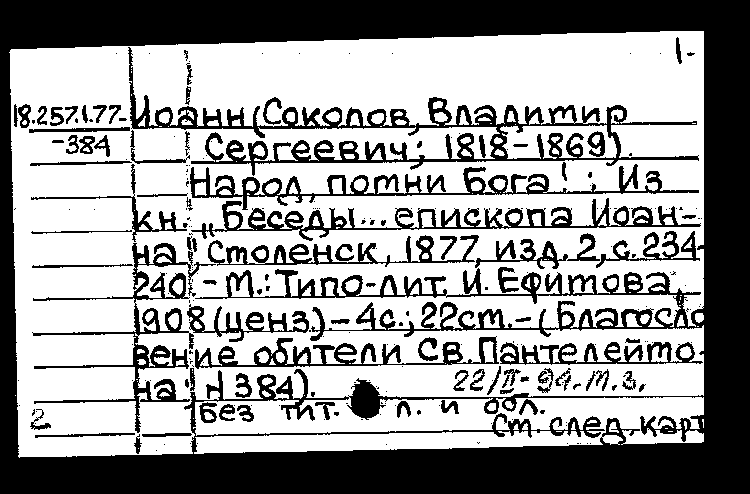 1-
18.257.1.77- Иоанн (Соколов, Владимир
-384 Сергеевич; 1818-1869).
Народ, помни Бога! : Из
кн. „Беседы... епископа Иоан-
на", Смоленск, 1877, изд. 2, с. 234-
240. - М.: Типо-лит. И. Ефимова,
1908 (ценз.) - 4с.; 22см. - (Благосло
вение обители Св. Пантелеймо-
на ; № 384).
22/II-94. М.З.
2 без тит. л. и обл.
См. след. карт